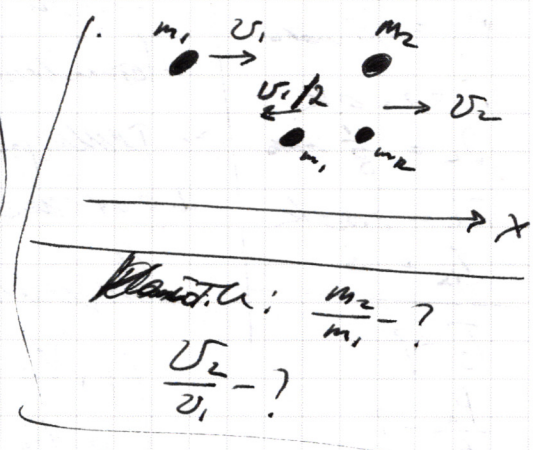 1.
m₁ v₁ m₂
v₁/2 v₂
m₁ m₂
x
m₂/m₁ - ?
v₂/v₁ - ?